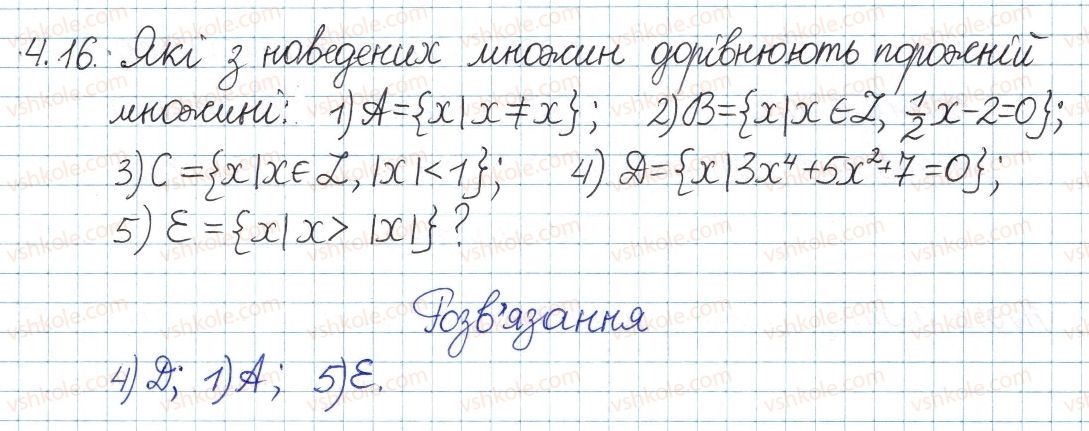 4.16. Які з наведених множин дорівнюють порожній
множині: 1) A={x|x≠x}; 2) B={x|x∈Z, 1/2x-2=0};
3) C={x|x∈Z, |x|<1}; 4) D={x|3x⁴+5x²+7=0};
5) E={x|x>|x|}?
Розв'язання
4) D; 1) A; 5) E.